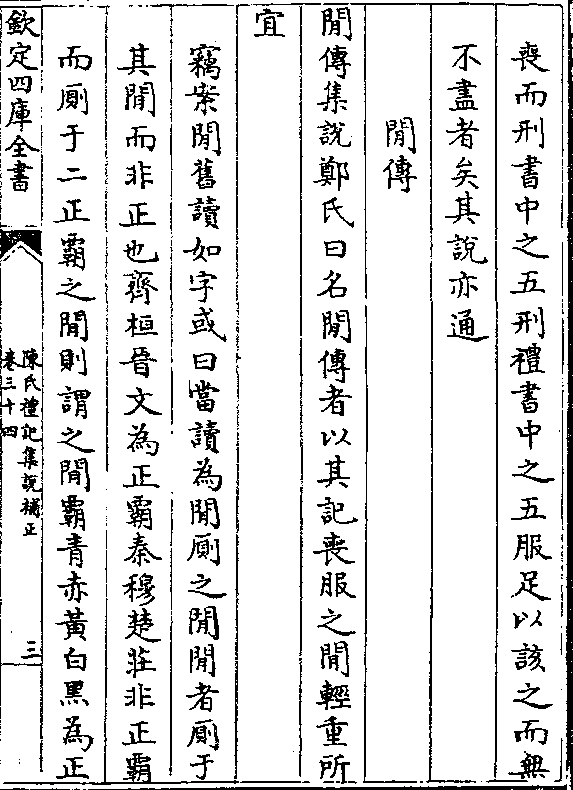 喪而刑書中之五刑禮書中之五服足以該之而無
不盡者矣其說亦通
閒傳
閒傳集說鄭氏曰名閒傳者以其記喪服之閒輕重所
宜
竊案閒舊讀如字或曰當讀為閒厠之閒閒者厠于
其閒而非正也齊桓晉文為正霸秦穆楚莊非正霸
而厠于二正霸之閒則謂之閒霸青赤黃白黑為正
欽定四庫全書
陳氏禮記集說補正
卷三十四
三